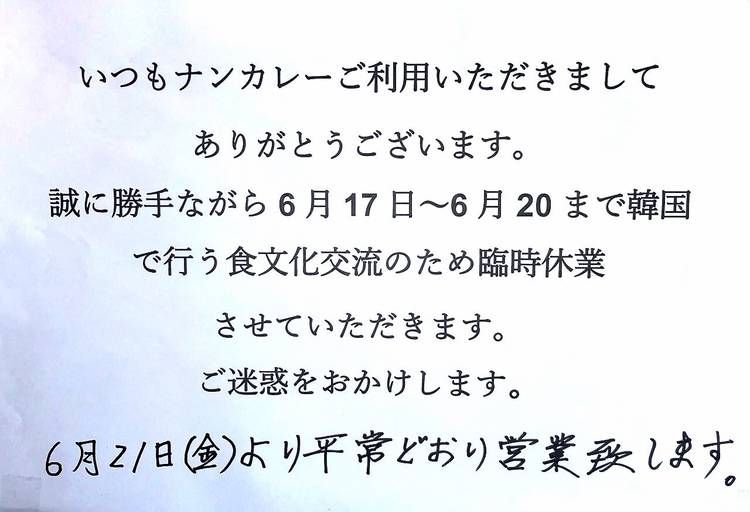 いつもナンカレーご利用いただきまして
ありがとうございます。
誠に勝手ながら6月17日～6月20まで韓国
で行う食文化交流のため臨時休業
させていただきます。
ご迷惑をおかけします。
6月21日(金)より平常どおり営業致します。